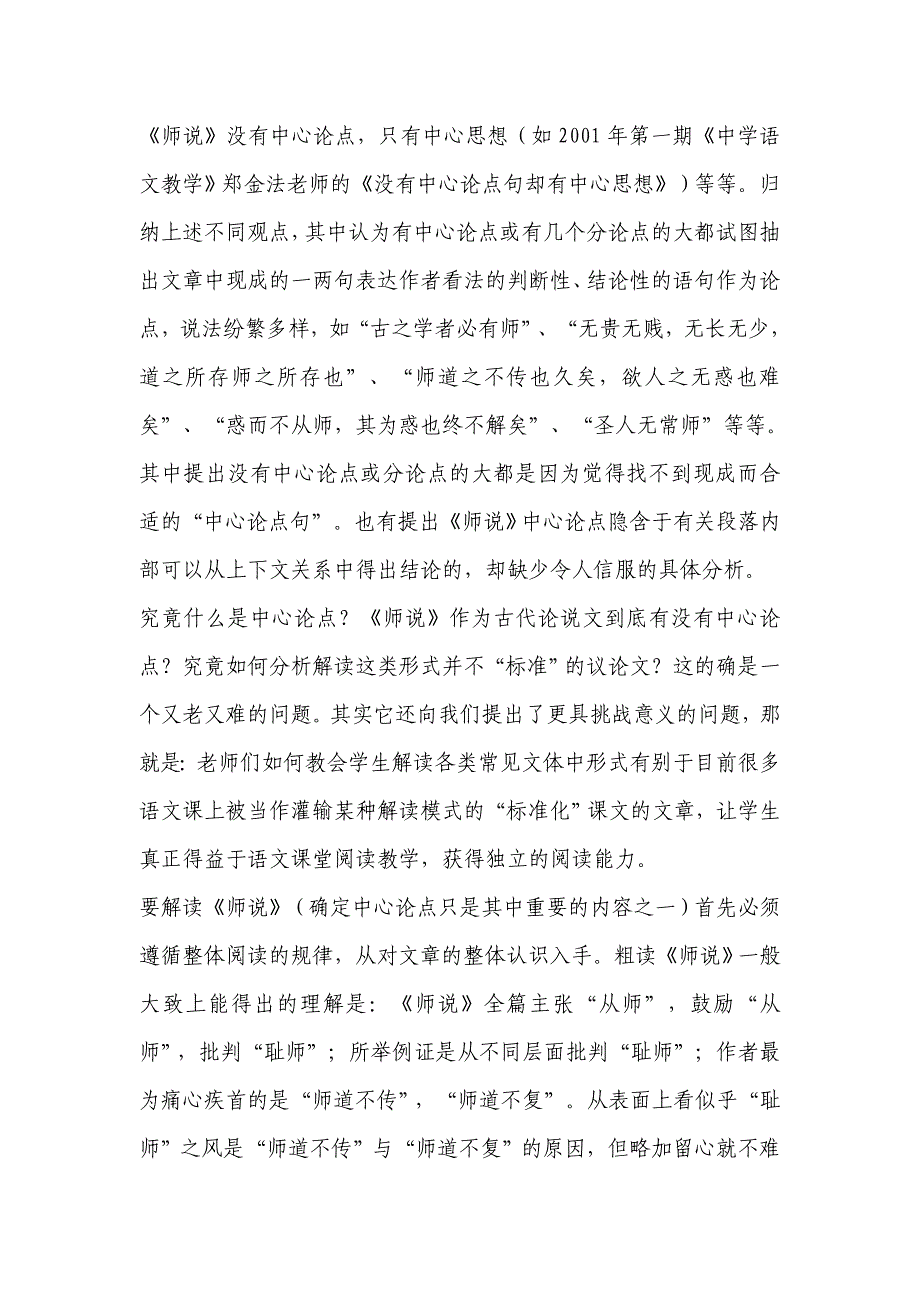 《师说》没有中心论点，只有中心思想（如 2001 年第一期《中学语
文教学》郑金法老师的《没有中心论点句却有中心思想》）等等。归
纳上述不同观点，其中认为有中心论点或有几个分论点的大都试图抽
出文章中现成的一两句表达作者看法的判断性、结论性的语句作为论
点，说法纷繁多样，如“古之学者必有师”、“无贵无贱，无长无少，
道之所存师之所存也”、“师道之不传也久矣，欲人之无惑也难
矣”、“惑而不从师，其为惑也终不解矣”、“圣人无常师”等等。
其中提出没有中心论点或分论点的大都是因为觉得找不到现成而合
适的“中心论点句”。也有提出《师说》中心论点隐含于有关段落内
部可以从上下文关系中得出结论的，却缺少令人信服的具体分析。
究竟什么是中心论点？《师说》作为古代论说文到底有没有中心论
点？究竟如何分析解读这类形式并不“标准”的议论文？这的确是一
个又老又难的问题。其实它还向我们提出了更具挑战意义的问题，那
就是：老师们如何教会学生解读各类常见文体中形式有别于目前很多
语文课上被当作灌输某种解读模式的“标准化”课文的文章，让学生
真正得益于语文课堂阅读教学，获得独立的阅读能力。
要解读《师说》（确定中心论点只是其中重要的内容之一）首先必须
遵循整体阅读的规律，从对文章的整体认识入手。粗读《师说》一般
大致上能得出的理解是：《师说》全篇主张“从师”，鼓励“从
师”，批判“耻师”；所举例证是从不同层面批判“耻师”；作者最
为痛心疾首的是“师道不传”，“师道不复”。从表面上看似乎“耻
师”之风是“师道不传”与“师道不复”的原因，但略加留心就不难